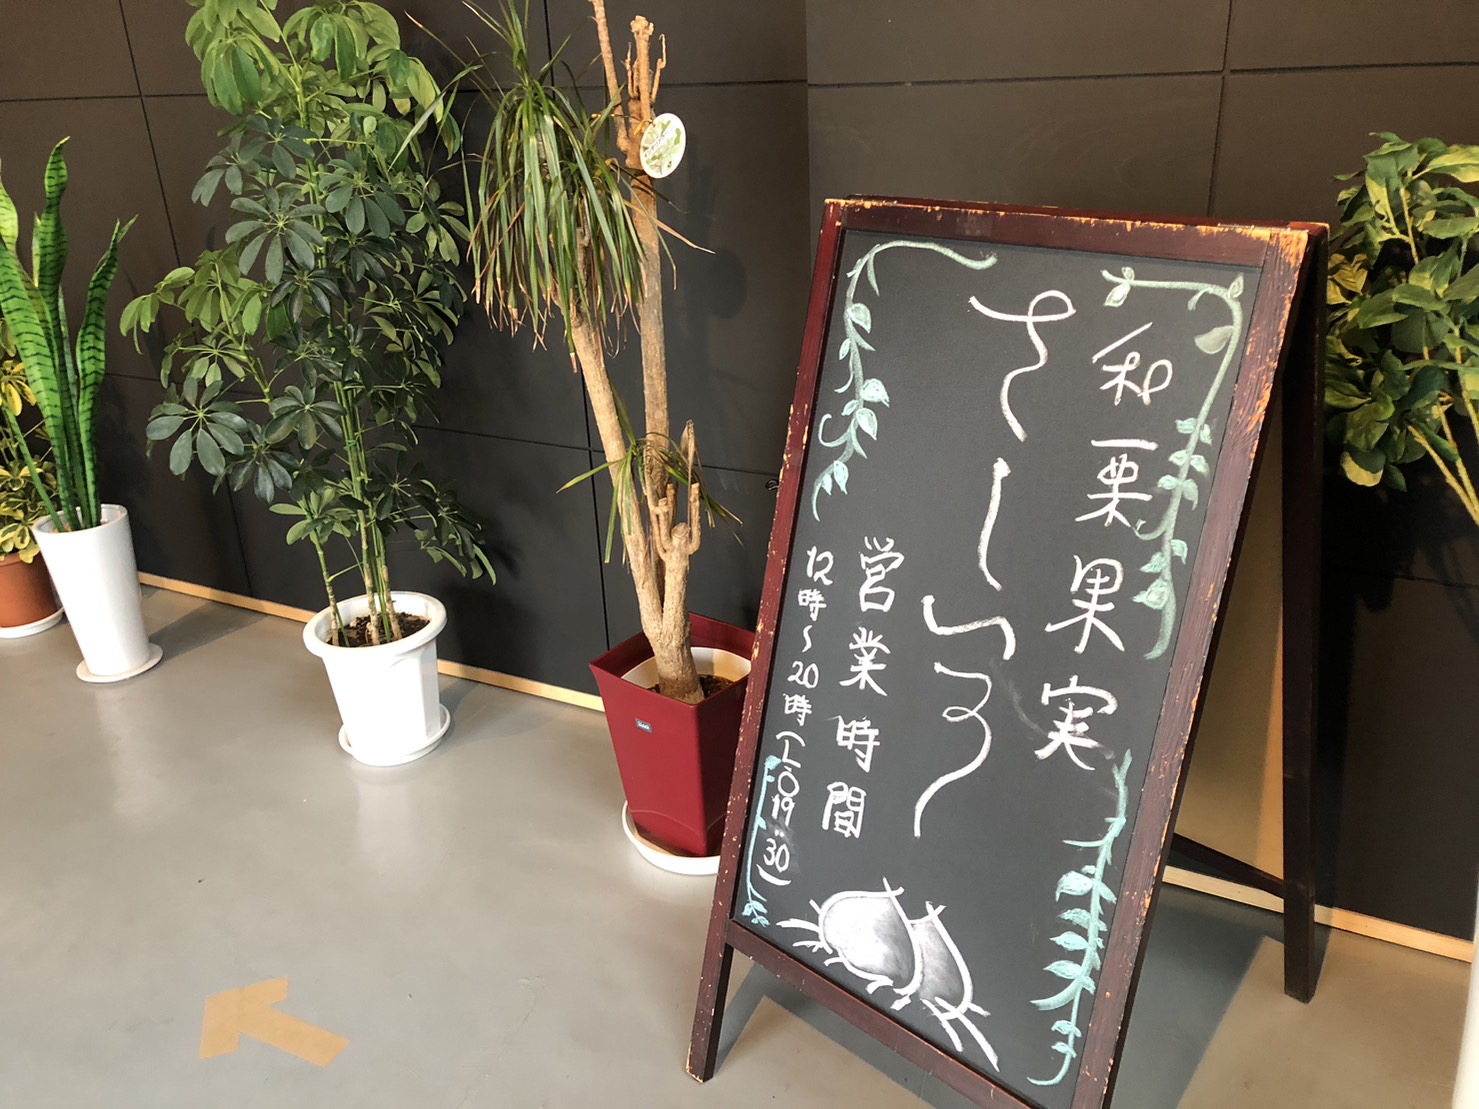 和栗果実
さしいろ
営業時間
12時〜20時(L.O 19:30)